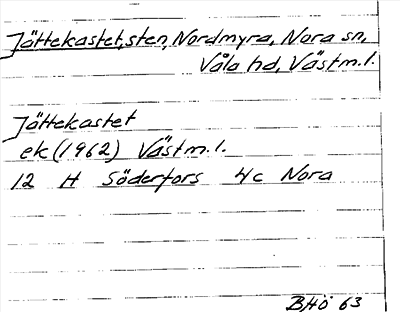 Jättekastet, sten, Nordmyra, Nora sn,
Våla hd, Västm.l.
Jättekastet
ek (1962) Västm.l.
12 H Söderfors 4c Nora
BHö 63